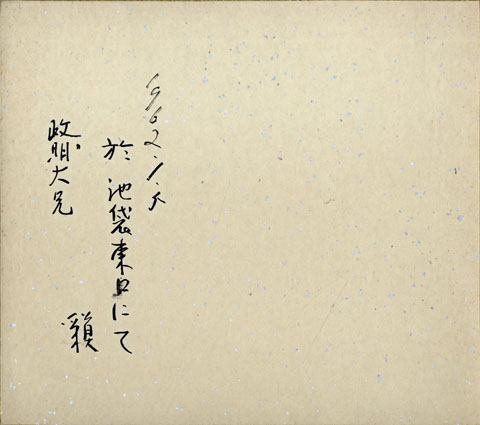 1962.1.5
於 池袋東口にて
瀬
政明大兄